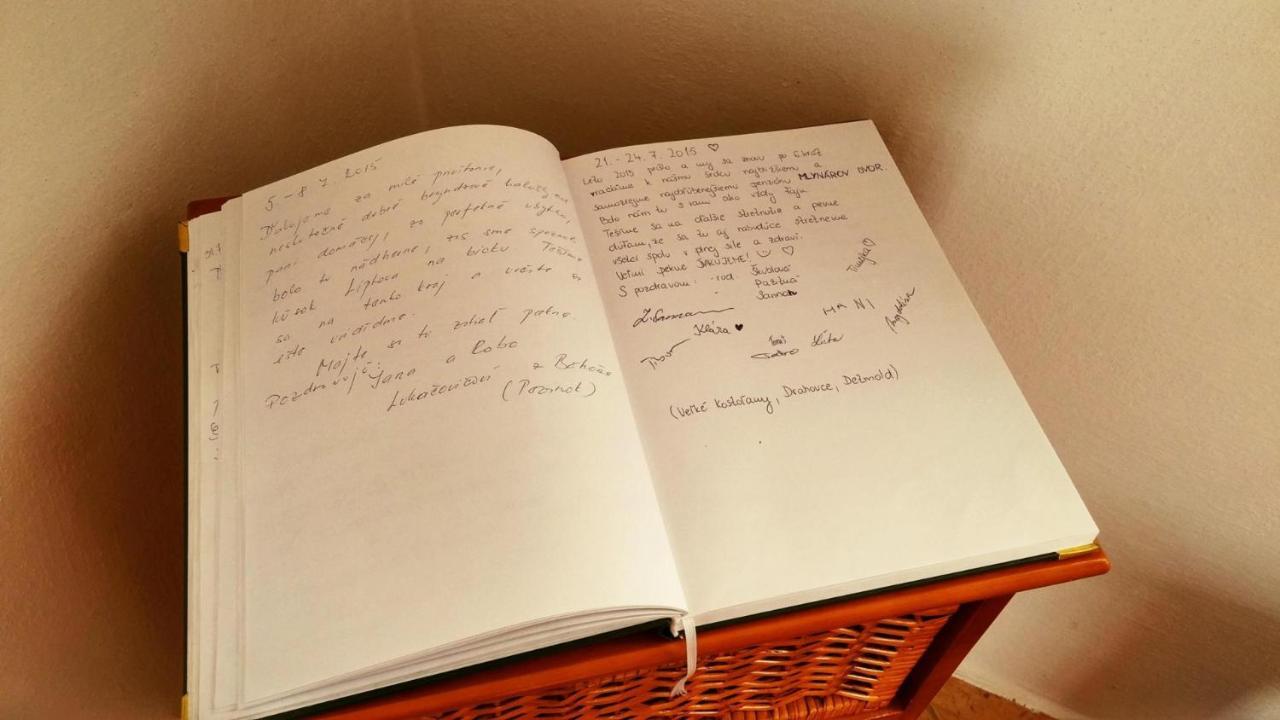 5 - 8 7. 2015
Ďakujeme za milé privítanie,
neskutočne dobré bryndzové halušky
pani domácej, za perfektné
bolo tu nádherne, zas sme spoznali
kúsok Liptova na bicykli Tešíme
sa na tento kraj a určite sa
ešte uvidíme.
Majte sa tu zatiaľ pekne.
Pozdravujú Jana a Robo
Lukačovičoví z
(Pezinok)
21. - 24. 7. 2015 ♡
Leto 2015 prišlo a my sa znovu po
vraciame k nášmu srdcu najbližšiemu a
samozrejme najobľúbenejšiemu penziónu MLYNÁROV DVOR.
Bolo nám tu s vami ako vždy fajn
Tešíme sa na ďalšie stretnutie a pevne
dúfam, že sa tu aj nabudúce stretneme
všetci spolu v plnej sile a zdraví.
Veľmi pekne ĎAKUJEME! ♡
S pozdravom: rod. Škublová
Pažitná
Sanna
Klára ♥
Tibor
HANI
(Veľké Kostoľany, Drahovce, Detmold)